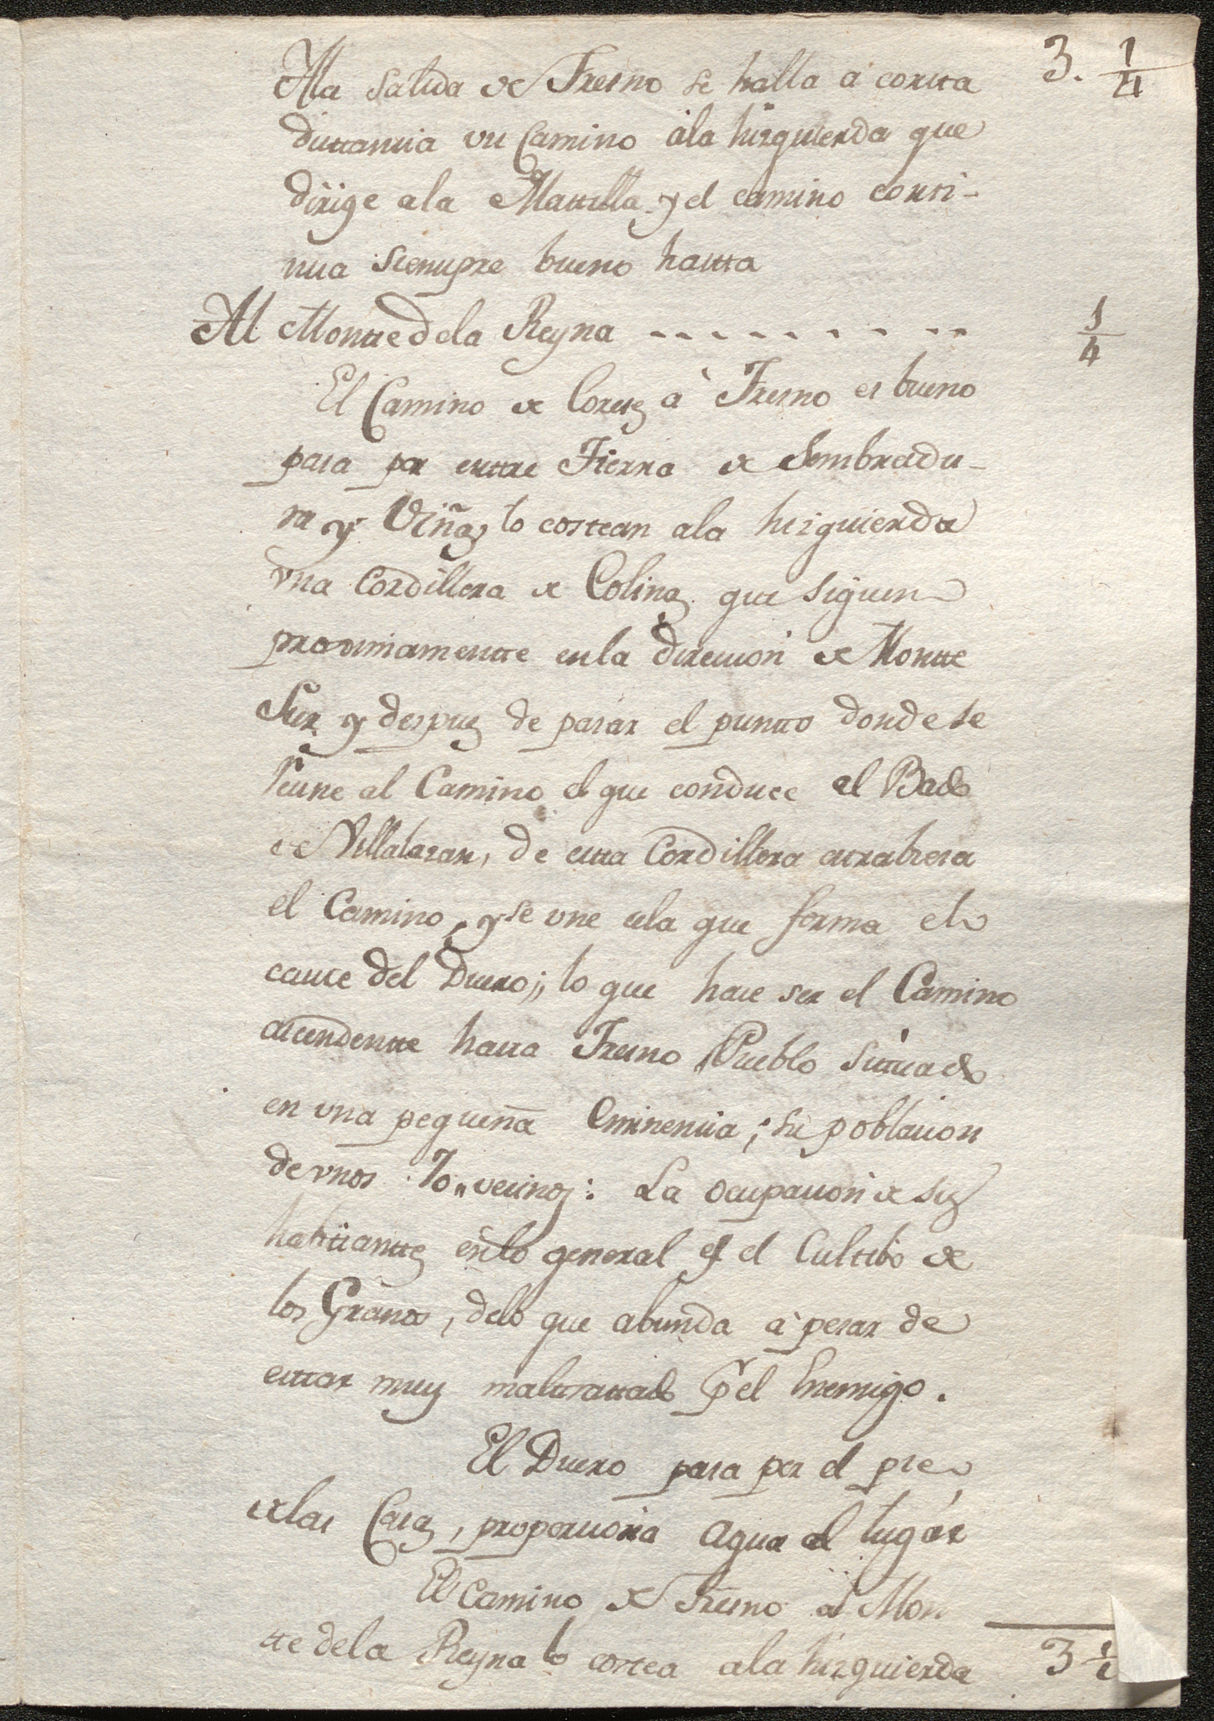 3. 1/4
Ala salida de Fresno se halla á corta
disttancia un Camino ála hizquierda que
dirige ala Mattilla y el camino conti-
nua siempre bueno hastta
Al Montte dela Reyna - - - - - - - - 1/4
El Camino de Coreses á Fresno es bueno
pasa por enttre Tierra de Sembradu-
ra y Viñas, lo costean ala hizquierda
vna Cordillera de Colinas que siguen
proximamentte enla direccion de Montte
Sur y despues de pasar el puntto donde se
reune al Camino el que conduce al Bado
de Villalazan, de estta Cordillera attrabiesa
el Camino, y se vne ala que forma el
cauce del Duero; lo que hace ser el Camino
ascendentte hasta Fresno, Pueblo situado
en vna pequeña Eminencia; su poblacion
de vnos 70,, vecinos: La ocupacion de sus
habitanttes enlo general es el Cultibo de
los Granos, delo que abunda á pesar de
esttar muy malttrattado pr el Enemigo.
El Duero pasa por el pie
delas Casas, proporciona agua al lugár
El camino de Fresno al Mon
tte dela Reyna lo costea ala hizquierda
3